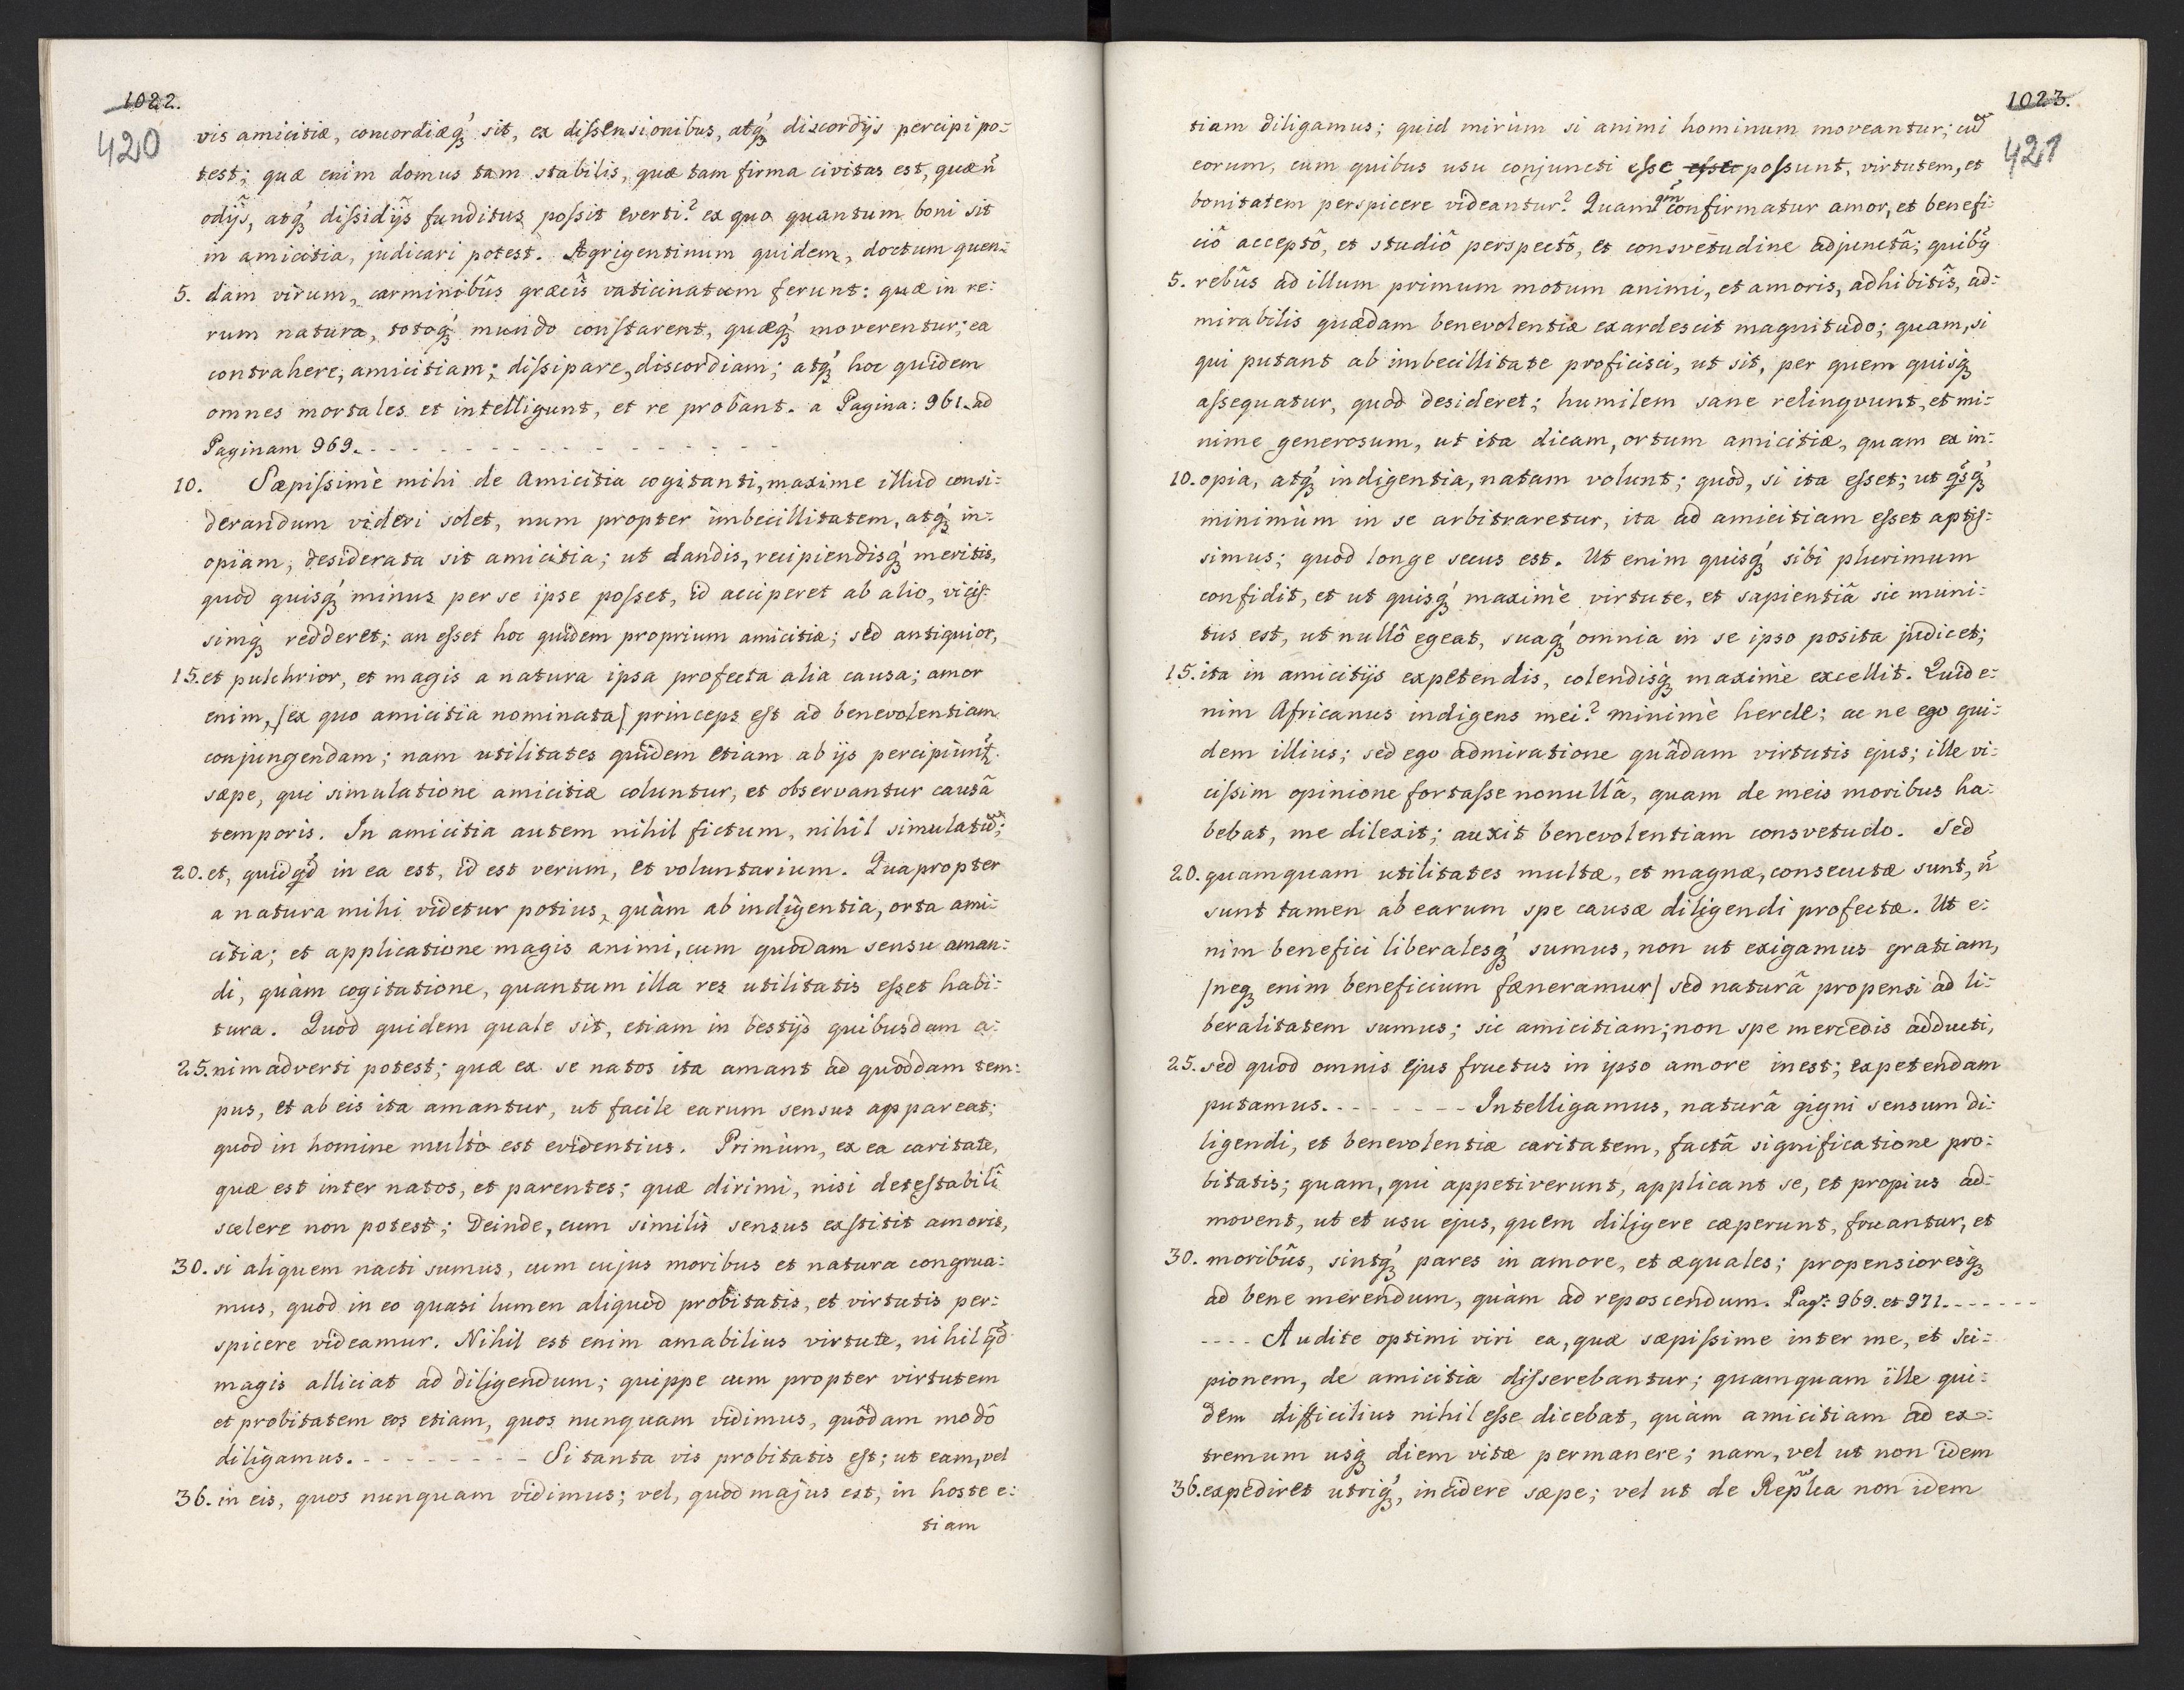 1022.
420
vis amicitiæ, concordiæq́ʒ sit, ex dißensionibus, atq́ʒ discordijs percipi po:
test; quæ enim domus tam stabilis, quæ tam firma civitas est, quæ ñ
odijs, atq́ʒ dißidijs funditus poßit everti? ex quo quantum boni sit
in amicitia, judicari potest. Agrigentinum quidem, doctum quen:
5. dam virum, carminibûs græcîs vaticinatum ferunt: quæ in re:
rum natura, totoq́ʒ mundo constarent, quæq́ʒ moverentur; ea
contrahere, amicitiam; dißipare, discordiam; atq́ʒ hoc quidem
omnes mortales et intelligunt, et re probant. a Pagina: 961. ad
Paginam 969. - - - - - - - - - - - - - - - -
10. Sæpißimè mihi de Amicitia cogitanti, maxime illud consi:
derandum videri solet, num propter imbecillitatem, atq́ʒ in:
opiam, desiderata sit amicitia; ut dandis, recipiendisq́ʒ meritis,
quod quisq́ʒ minus per se ipse poßet, id acciperet ab alio, viciß:
simqʒ redderet; an eßet hoc quidem proprium amicitiæ; sed antiquior,
15. et pulchrior, et magis a natura ipsa profecta alia causa; amor
enim, /ex quo amicitia nominata/ princeps est ad benevolentiam
conjungendam; nam utilitates quidem etiam ab ijs percipiunt̃.
sæpe, qui simulatione amicitiæ coluntur, et observantur causâ
temporis. In amicitia autem nihil fictum, nihil simulatũ;
20. et, quidqd̃ in ea est, id est verum, et voluntarium. Quapropter
a natura mihi videtur potius, quàm ab indigentia, orta ami:
citia; et applicatione magis animi, cum quodam sensu aman:
di, quàm cogitatione, quantum illa res utilitatis eßet habi:
tura. Quod quidem quale sit, etiam in bestijs quibusdam a:
25. nimadverti potest; quæ ex se natos ita amant ad quoddam tem:
pus, et ab eis ita amantur, ut facile earum sensus appareat;
quod in homine multò est evidentius. Primùm, ex ea caritate,
quæ est inter natos, et parentes; quæ dirimi, nisi detestabilî
scelere non potest; Deinde, cum similis sensus exstitit amoris,
30. si aliquem nacti sumus, cum cujus moribus et natura congrua:
mus, quod in eo quasi lumen aliquod probitatis, et virtutis per:
spicere videamur. Nihil est enim amabilius virtute, nihil qd̃
magis alliciat ad diligendum; quippe cum propter virtutem
et probitatem eos etiam, quos nunquam vidimus, quôdam modô
diligamus. - - - - - - - - - Si tanta vis probitatis est; ut eam, vel
36. in eis, quos nunquam vidimus; vel, quod majus est, in hoste e:
tiam
1023.
421
tiam diligamus; quid mirùm si animi hominum moveantur; cũ
eorum, cum quibus usu conjuncti esse eße poßunt, virtutem, et
bonitatem perspicere videantur? Quamqm̃ confirmatur amor, et benefi:
ciô acceptô, et studiô perspectô, et consvetudine adjunctâ; quibq̃
5. rebûs ad illum primum motum animi, et amoris, adhibitîs, ad:
mirabilis quædam benevolentiæ exardescit magnitudo; quam, si
qui putant ab imbecillitate proficisci, ut sit, per quem quisqʒ
aßequatur, quod desideret; humilem sane relinqvunt, et mi:
nime generosum, ut ita dicam, ortum amicitiæ, quam ex in:
10. opia, atq́ʒ indigentia, natam volunt; quod, si ita eßet; ut qs̃q́ʒ
minimùm in se arbitraretur, ita ad amicitiam eßet aptiß:
simus; quod longe secus est. Ut enim quisq́ʒ sibi plurimum
confidit, et ut quisq́ʒ maximè virtute, et sapientiâ sic muni:
tus est, ut nullô egeat, suaq́ʒ omnia in se ipso posita judicet;
15. ita in amicitijs expetendis, colendisqʒ maximè excellit. Quid e:
nim Africanus indigens mei? minimè hercle; ac ne ego qui:
dem illius; sed ego admiratione quâdam virtutis ejus; ille vi:
cißim opinione fortaße nonullâ, quam de meis moribus ha:
bebat, me dilexit; auxit benevolentiam consvetudo. Sed
20. quamquam utilitates multæ, et magnæ, consecutæ sunt, ñ
sunt tamen ab earum spe causæ diligendi profectæ. Ut e:
nim benefici liberalesq́ʒ sumus, non ut exigamus gratiam,
/neqʒ enim beneficium fæneramur/ sed naturâ propensi ad li:
beralitatem sumus; sic amicitiam; non spe mercedis adducti,
25. sed quod omnis ejus fructus in ipso amore inest; expetendam
putamus. - - - - - - - Intelligamus, naturâ gigni sensum di:
ligendi, et benevolentiæ caritatem, factâ significatione pro:
bitatis; quam, qui appetiverunt, applicant se, et propius ad:
movent, ut et usu ejus, quem diligere cæperunt, fruantur, et
30. moribûs, sintq́ʒ pares in amore, et æquales; propensioresqʒ
ad bene merendum, quàm ad reposcendum. Pag: 969. et 971. - - - - - -
- - - - Audite optimi viri ea, quæ sæpißime inter me, et Sci:
pionem, de amicitia dißerebantur; quamquam ille qui:
dem difficilius nihil eße dicebat, quàm amicitiam ad ex:
tremum usqʒ diem vitæ permanere; nam, vel ut non idem
36. expediret utriq́ʒ, incidere sæpe; vel ut de Rep̃lica non idem